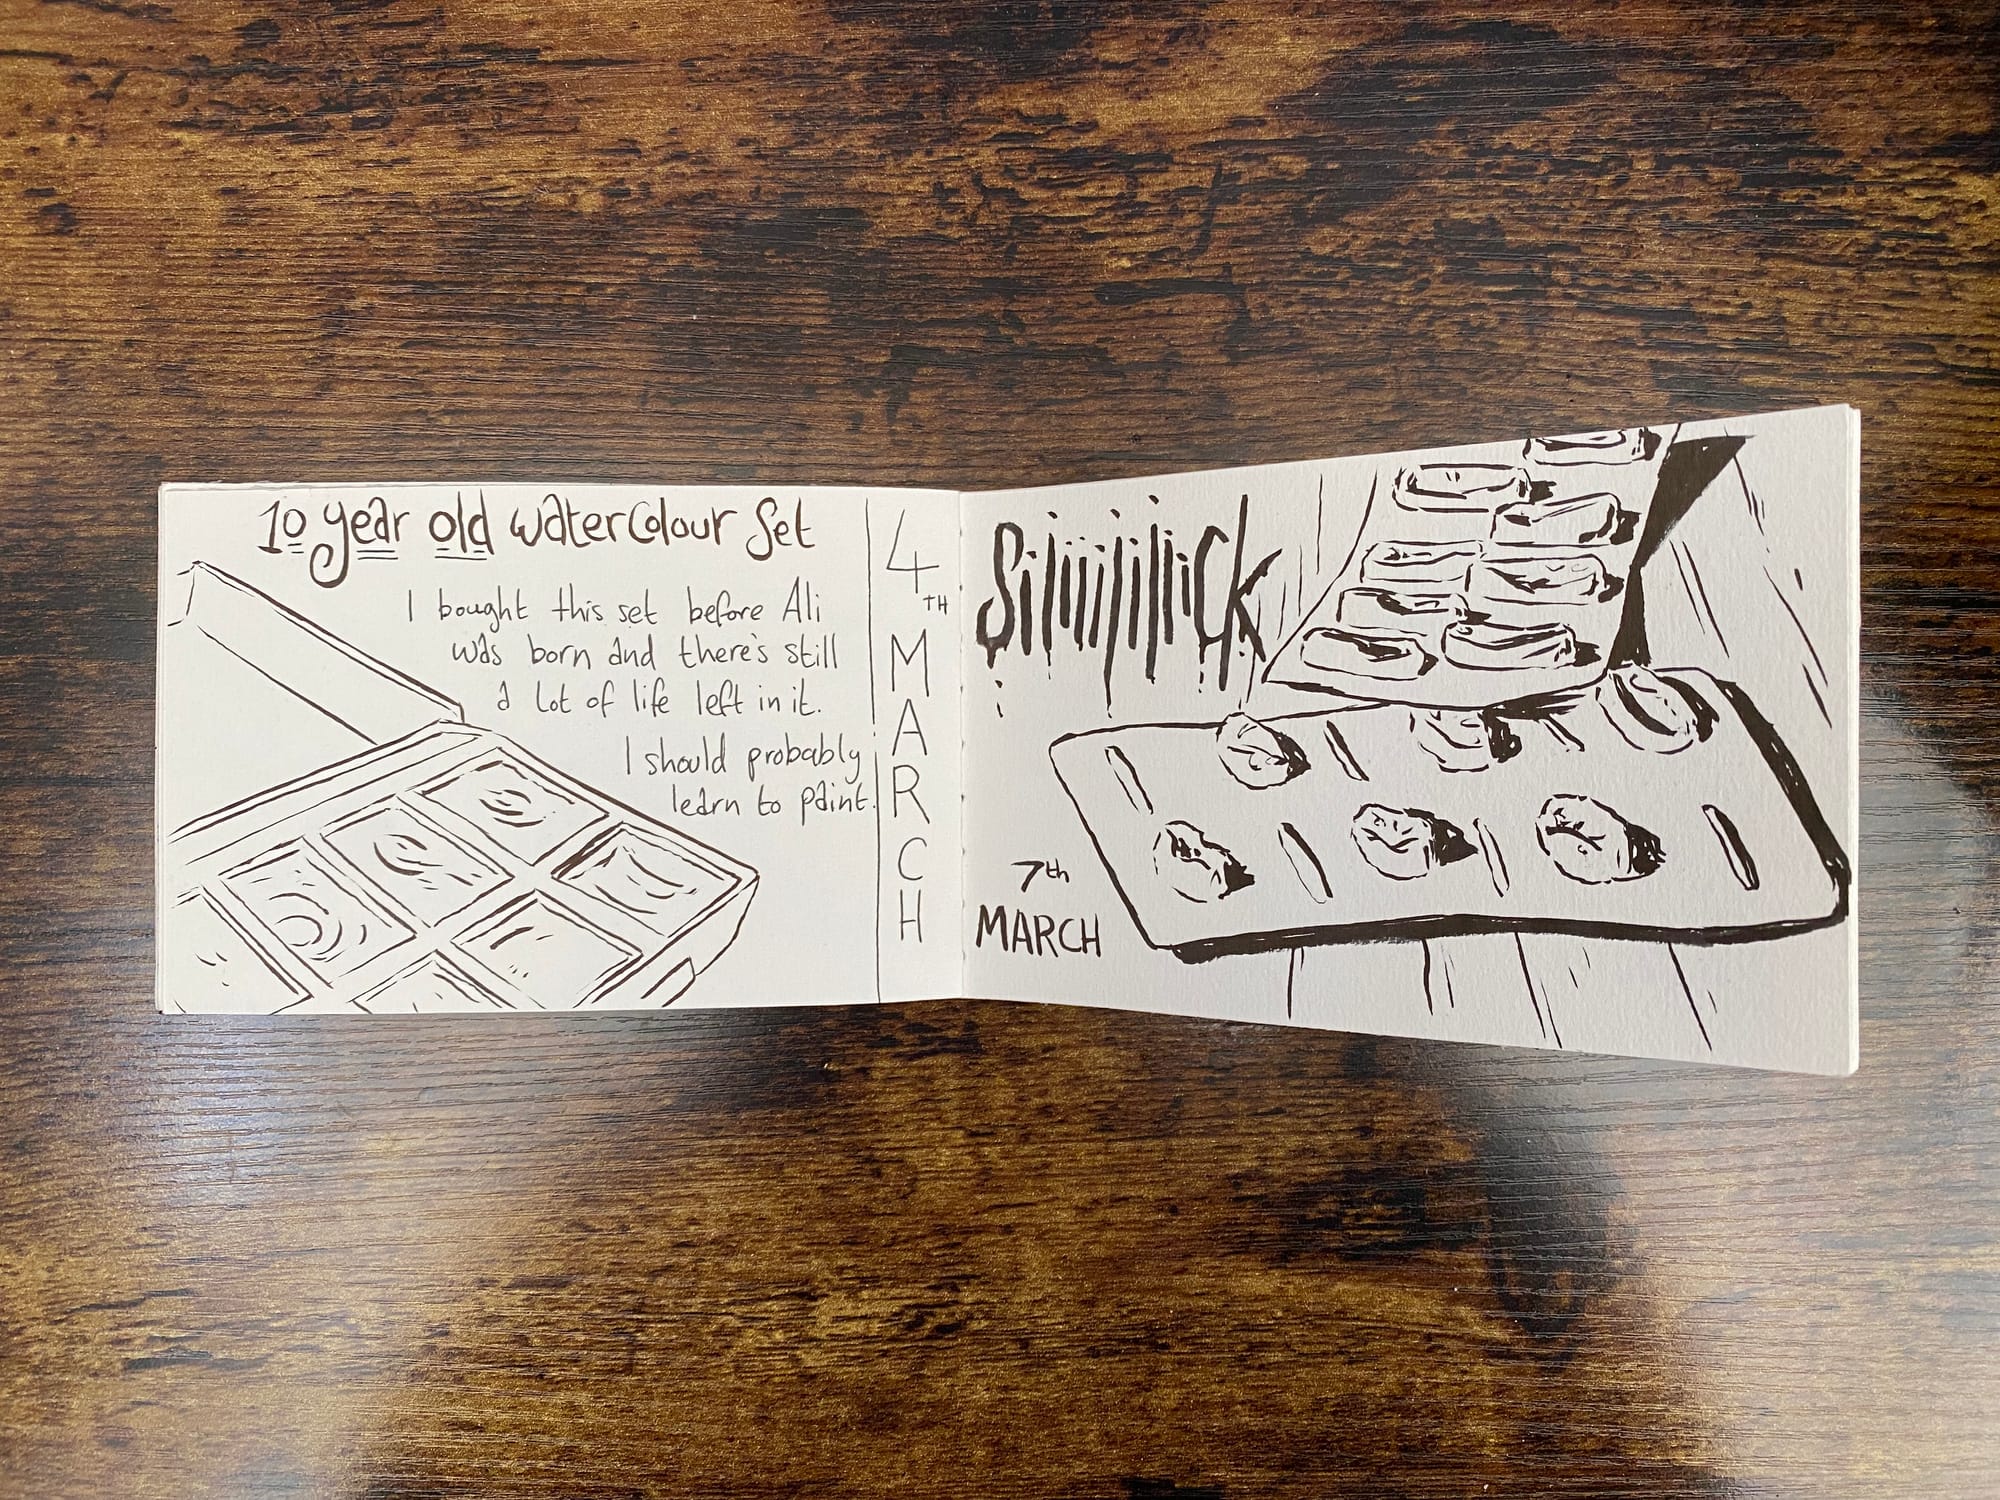 10 year old watercolour set
I bought this set before Ali
was born and there's still
a lot of life left in it.
I should probably
learn to paint.
4TH
MARCH
Siiiiiiiiiick
7th
MARCH